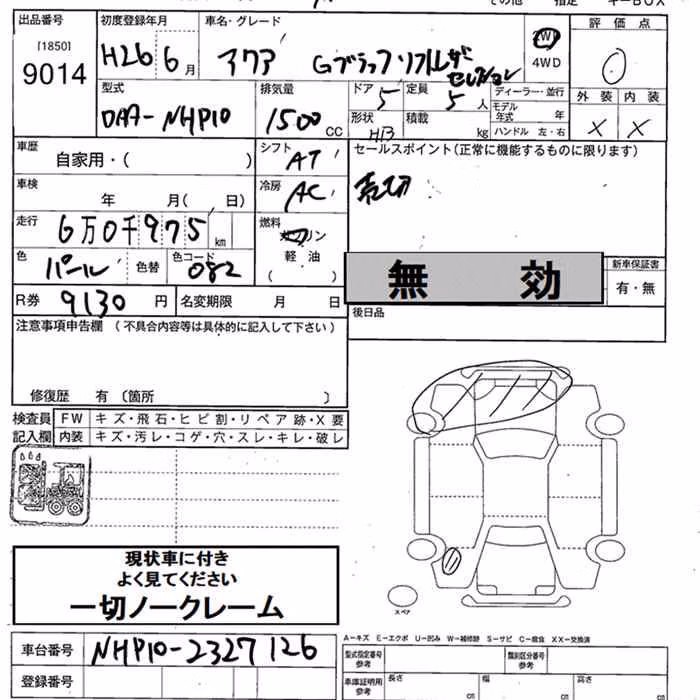 その他 指定 キーBOX
出品番号 初度登録年月 車名・グレード 評価点
[1850]
9014
H26 6月 アクア Gブラックソフトレザー
セレクション
2WD
4WD
0
型式 排気量 ドア 定員 ディーラー・並行 外装 内装
DAA-NHP10 1500 CC 5 5人
モデル年式 年
形状 積載
H/B kg ハンドル 左・右
X X
車歴 シフト セールスポイント(正常に機能するものに限ります)
自家用・( AT
売切
車検 冷房
年 月( 日) AC
走行 燃料
6万0千975km ガソリン
色 色コード 軽油
パール 色替 082 ( )
無効
新車保証書
有・無
R券 9130円 名変期限 月 日
後日品
注意事項申告欄(不具合内容等は具体的に記入して下さい)
修復歴 有〔箇所 〕
検査員 FW キズ・飛石・ヒビ割・リペア跡・X要
記入欄 内装 キズ・汚レ・コゲ・穴・スレ・キレ・破レ
現状車に付き
よく見てください
一切ノークレーム
スペア
A-キズ E-エクボ U-凹み W-補修跡 S-サビ C-腐食 XX-交換済
車台番号 NHP10-2327126
型式指定番号 参考 類別区分番号 参考
登録番号
車庫証明用 参考 長さ cm 幅 cm 高さ cm